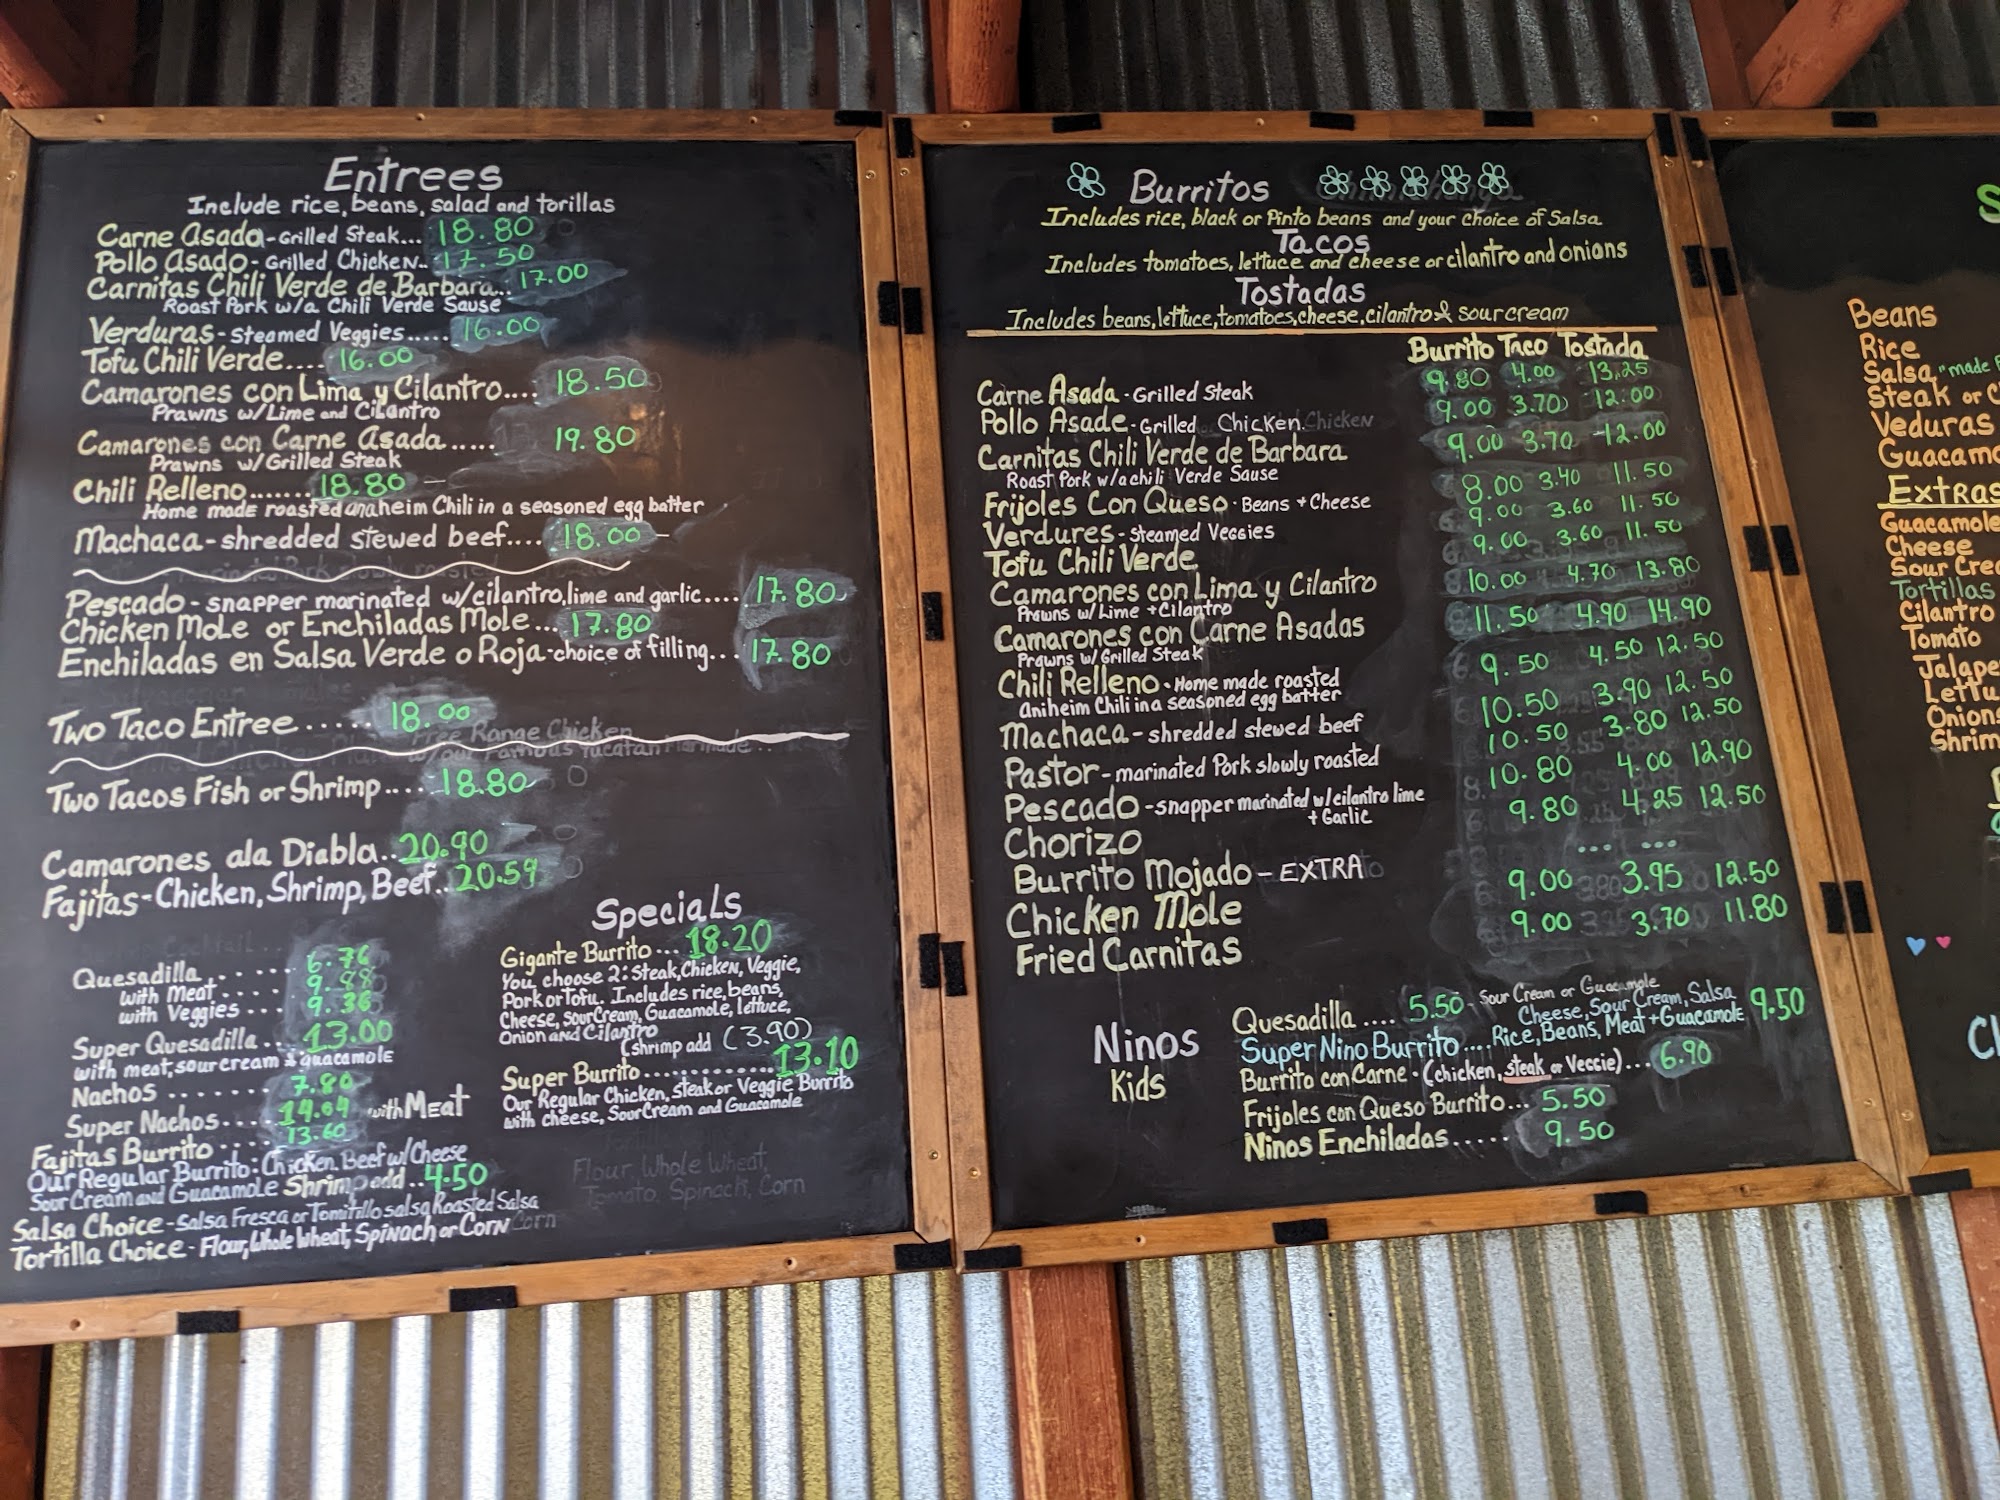 Entrees
Include rice, beans, salad and torillas
Carne Asada - Grilled Steak... 18.80
Pollo Asado - Grilled Chicken.. 17.50
Carnitas Chili Verde de Barbara... 17.00
Roast Pork w/a Chili Verde Sause
Verduras - Steamed Veggies..... 16.00
Tofu Chili Verde.... 16.00
Camarones con Lima y Cilantro.... 18.50
Prawns w/Lime and Cilantro
Camarones con Carne Asada..... 19.80
Prawns w/Grilled Steak
Chili Relleno....... 18.80
Home made roasted anaheim Chili in a seasoned egg batter
Machaca - shredded stewed beef.... 18.00
Pescado - snapper marinated w/cilantro, lime and garlic.... 17.80
Chicken Mole or Enchiladas Mole... 17.80
Enchiladas en Salsa Verde o Roja - choice of filling... 17.80
Two Taco Entree...... 18.00
Free Range Chicken
Two Tacos Fish or Shrimp.... 18.80
Camarones ala Diabla.. 20.90
Fajitas - Chicken, Shrimp, Beef.. 20.59
Quesadilla...... 6.76
with Meat.... 9.88
with Veggies... 9.36
Super Quesadilla.. 13.00
with meat, sour cream & guacamole
Nachos....... 7.80
Super Nachos... 14.04 with Meat
Fajitas Burrito.... 13.60
Our Regular Burrito: Chicken Beef w/Cheese
Sour Cream and Guacamole Shrimp add.. 4.50
Salsa Choice - Salsa Fresca or Tomitillo salsa Roasted Salsa
Tortilla Choice - Flour, Whole Wheat, Spinach or Corn Corn
Specials
Gigante Burrito... 18.20
You choose 2: Steak, Chicken, Veggie,
Pork or Tofu. Includes rice, beans,
Cheese, sour Cream, Guacamole, lettuce,
Onion and Cilantro
(shrimp add (3.90)
Super Burrito........... 13.10
Our Regular Chicken, steak or Veggie Burrito
with cheese, Sour Cream and Guacamole
Flour, Whole Wheat,
Tomato, Spinach, Corn
Burritos
Includes rice, black or Pinto beans and your choice of Salsa
Tacos
Includes tomatoes, lettuce and cheese or cilantro and onions
Tostadas
Includes beans, lettuce, tomatoes, cheese, cilantro & sour cream
Burrito Taco Tostada
Carne Asada - Grilled Steak 9.80 4.00 13.25
Pollo Asade - Grilled Chicken Chicken 9.00 3.70 12.00
Carnitas Chili Verde de Barbara 9.00 3.70 12.00
Roast Pork w/a chili Verde Sause
Frijoles Con Queso - Beans + Cheese 8.00 3.40 11.50
Verdures - Steamed Veggies 9.00 3.60 11.50
Tofu Chili Verde 9.00 3.60 11.50
Camarones con Lima y Cilantro 10.00 4.70 13.80
Prawns w/Lime + Cilantro
Camarones con Carne Asadas 11.50 4.90 14.90
Prawns w/Grilled Steak
Chili Relleno - Home made roasted 9.50 4.50 12.50
Aniheim Chili in a seasoned egg batter
Machaca - shredded stewed beef 10.50 3.90 12.50
Pastor - marinated Pork slowly roasted 10.50 3.80 12.50
Pescado - snapper marinated w/cilantro lime 10.80 4.00 12.90
+ Garlic
Chorizo 9.80 4.25 12.50
Burrito Mojado - EXTRA ... ...
Chicken Mole 9.00 3.95 12.50
Fried Carnitas 9.00 3.70 11.80
Ninos
Kids
Quesadilla.... 5.50 - Sour Cream or Guacamole
Cheese, Sour Cream, Salsa
Super Nino Burrito.... Rice, Beans, Meat + Guacamole 9.50
Burrito con Carne - (chicken, steak or Veggie)... 6.90
Frijoles con Queso Burrito... 5.50
Ninos Enchiladas..... 9.50
S
Beans
Rice
Salsa "made
Steak or
Veduras
Guacamo
Extras
Guacamole
Cheese
Sour Crea
Tortillas
Cilantro
Tomato
Jalape
Lettu
Onions
Shrim